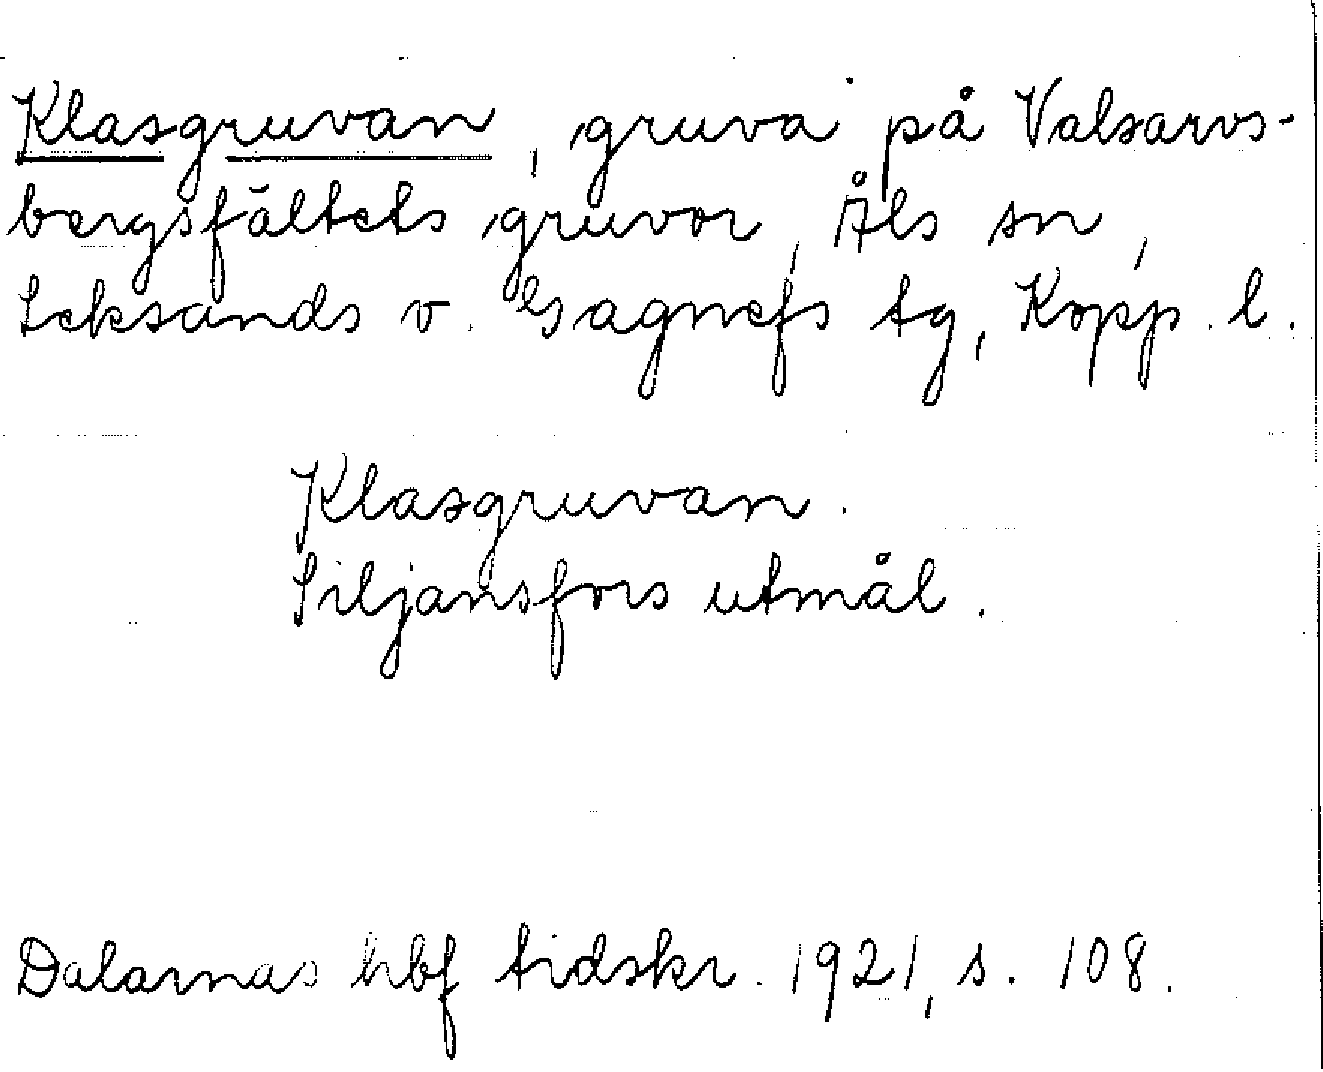 Klasgruvan, gruva på Valsarvs-
bergsfältets gruvor, Åls sn,
Leksands v. Gagnefs tg, Kopp. l.
Klasgruvan.
Siljansfors utmål.
Dalarnas hbf tidskr. 1921, s. 108.